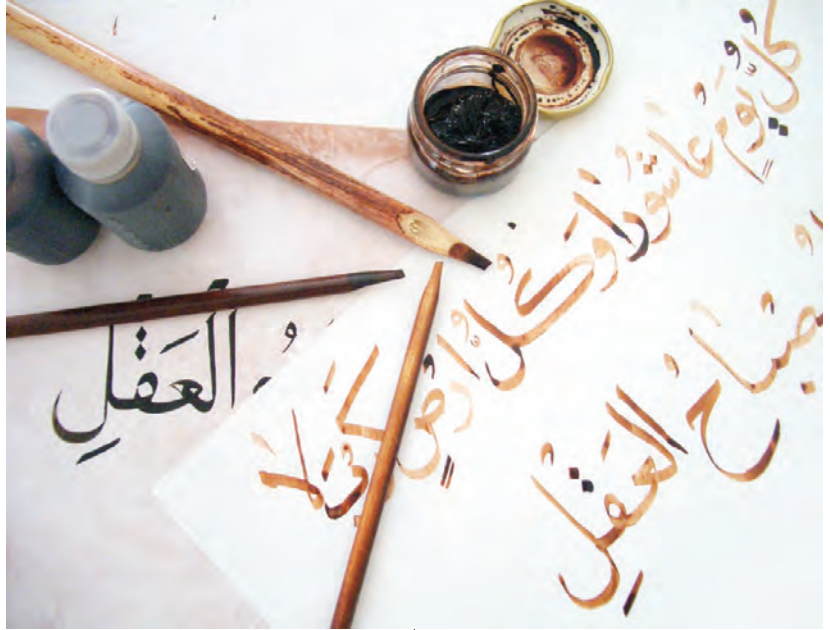 كُلُّ يَوْمٍ عاشُورا وَكُلُّ ارْضٍ كَربَلا
صْباحُ العَقْلِ
العَقْلِ